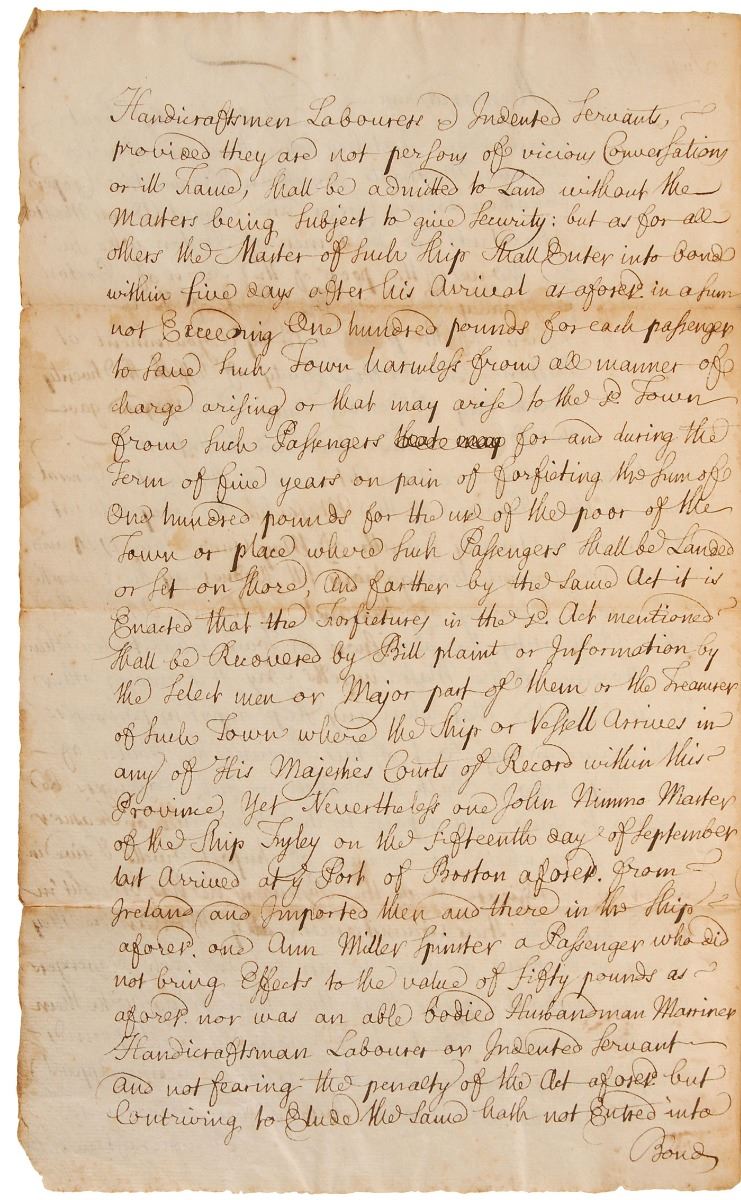 Handicraftsmen Labourers & Indented Servants,
provided they are not persons of vicious Conversations
or ill Fame, shall be admitted to Land without the
Masters being Subject to give Security: but as for all
others the Master of such Ship Shall Enter into bond
within five days after his Arrival as aforesd. in a Sum
not Exceeding One hundred pounds for each passenger
to save such Town harmless from all manner of
charge arising or that may arise to the sd. Town
from such Passengers for and during the
Term of five years on pain of forfieting the Sum of
One hundred pounds for the use of the poor of the
Town or place where such Passengers Shall be Landed
or set on Shore, And farther by the same Act it is
Enacted that the Forfietures in the sd. Act mentioned
shall be Recovered by Bill plaint or Information by
the Select men or Major part of them or the Treasurer
of such Town where the Ship or Vessell Arrives in
any of His Majesties Courts of Record within this
Province, Yet Nevertheless one John Nimmo Master
of the Ship on the fifteenth day of September
last Arrived at ye Port of Boston aforesd. from
Ireland and Imported then and there in the Ship
aforesd. one Ann Miller Spinster a Passenger who did
not bring Effects to the value of fifty pounds as
aforesd. nor was an able bodied Husbandman Marriner
Handicraftsman Labourer or Indented Servant
and not fearing the penalty of the Act aforesd. but
Contriving to Elude the same hath not Entred into
Bond